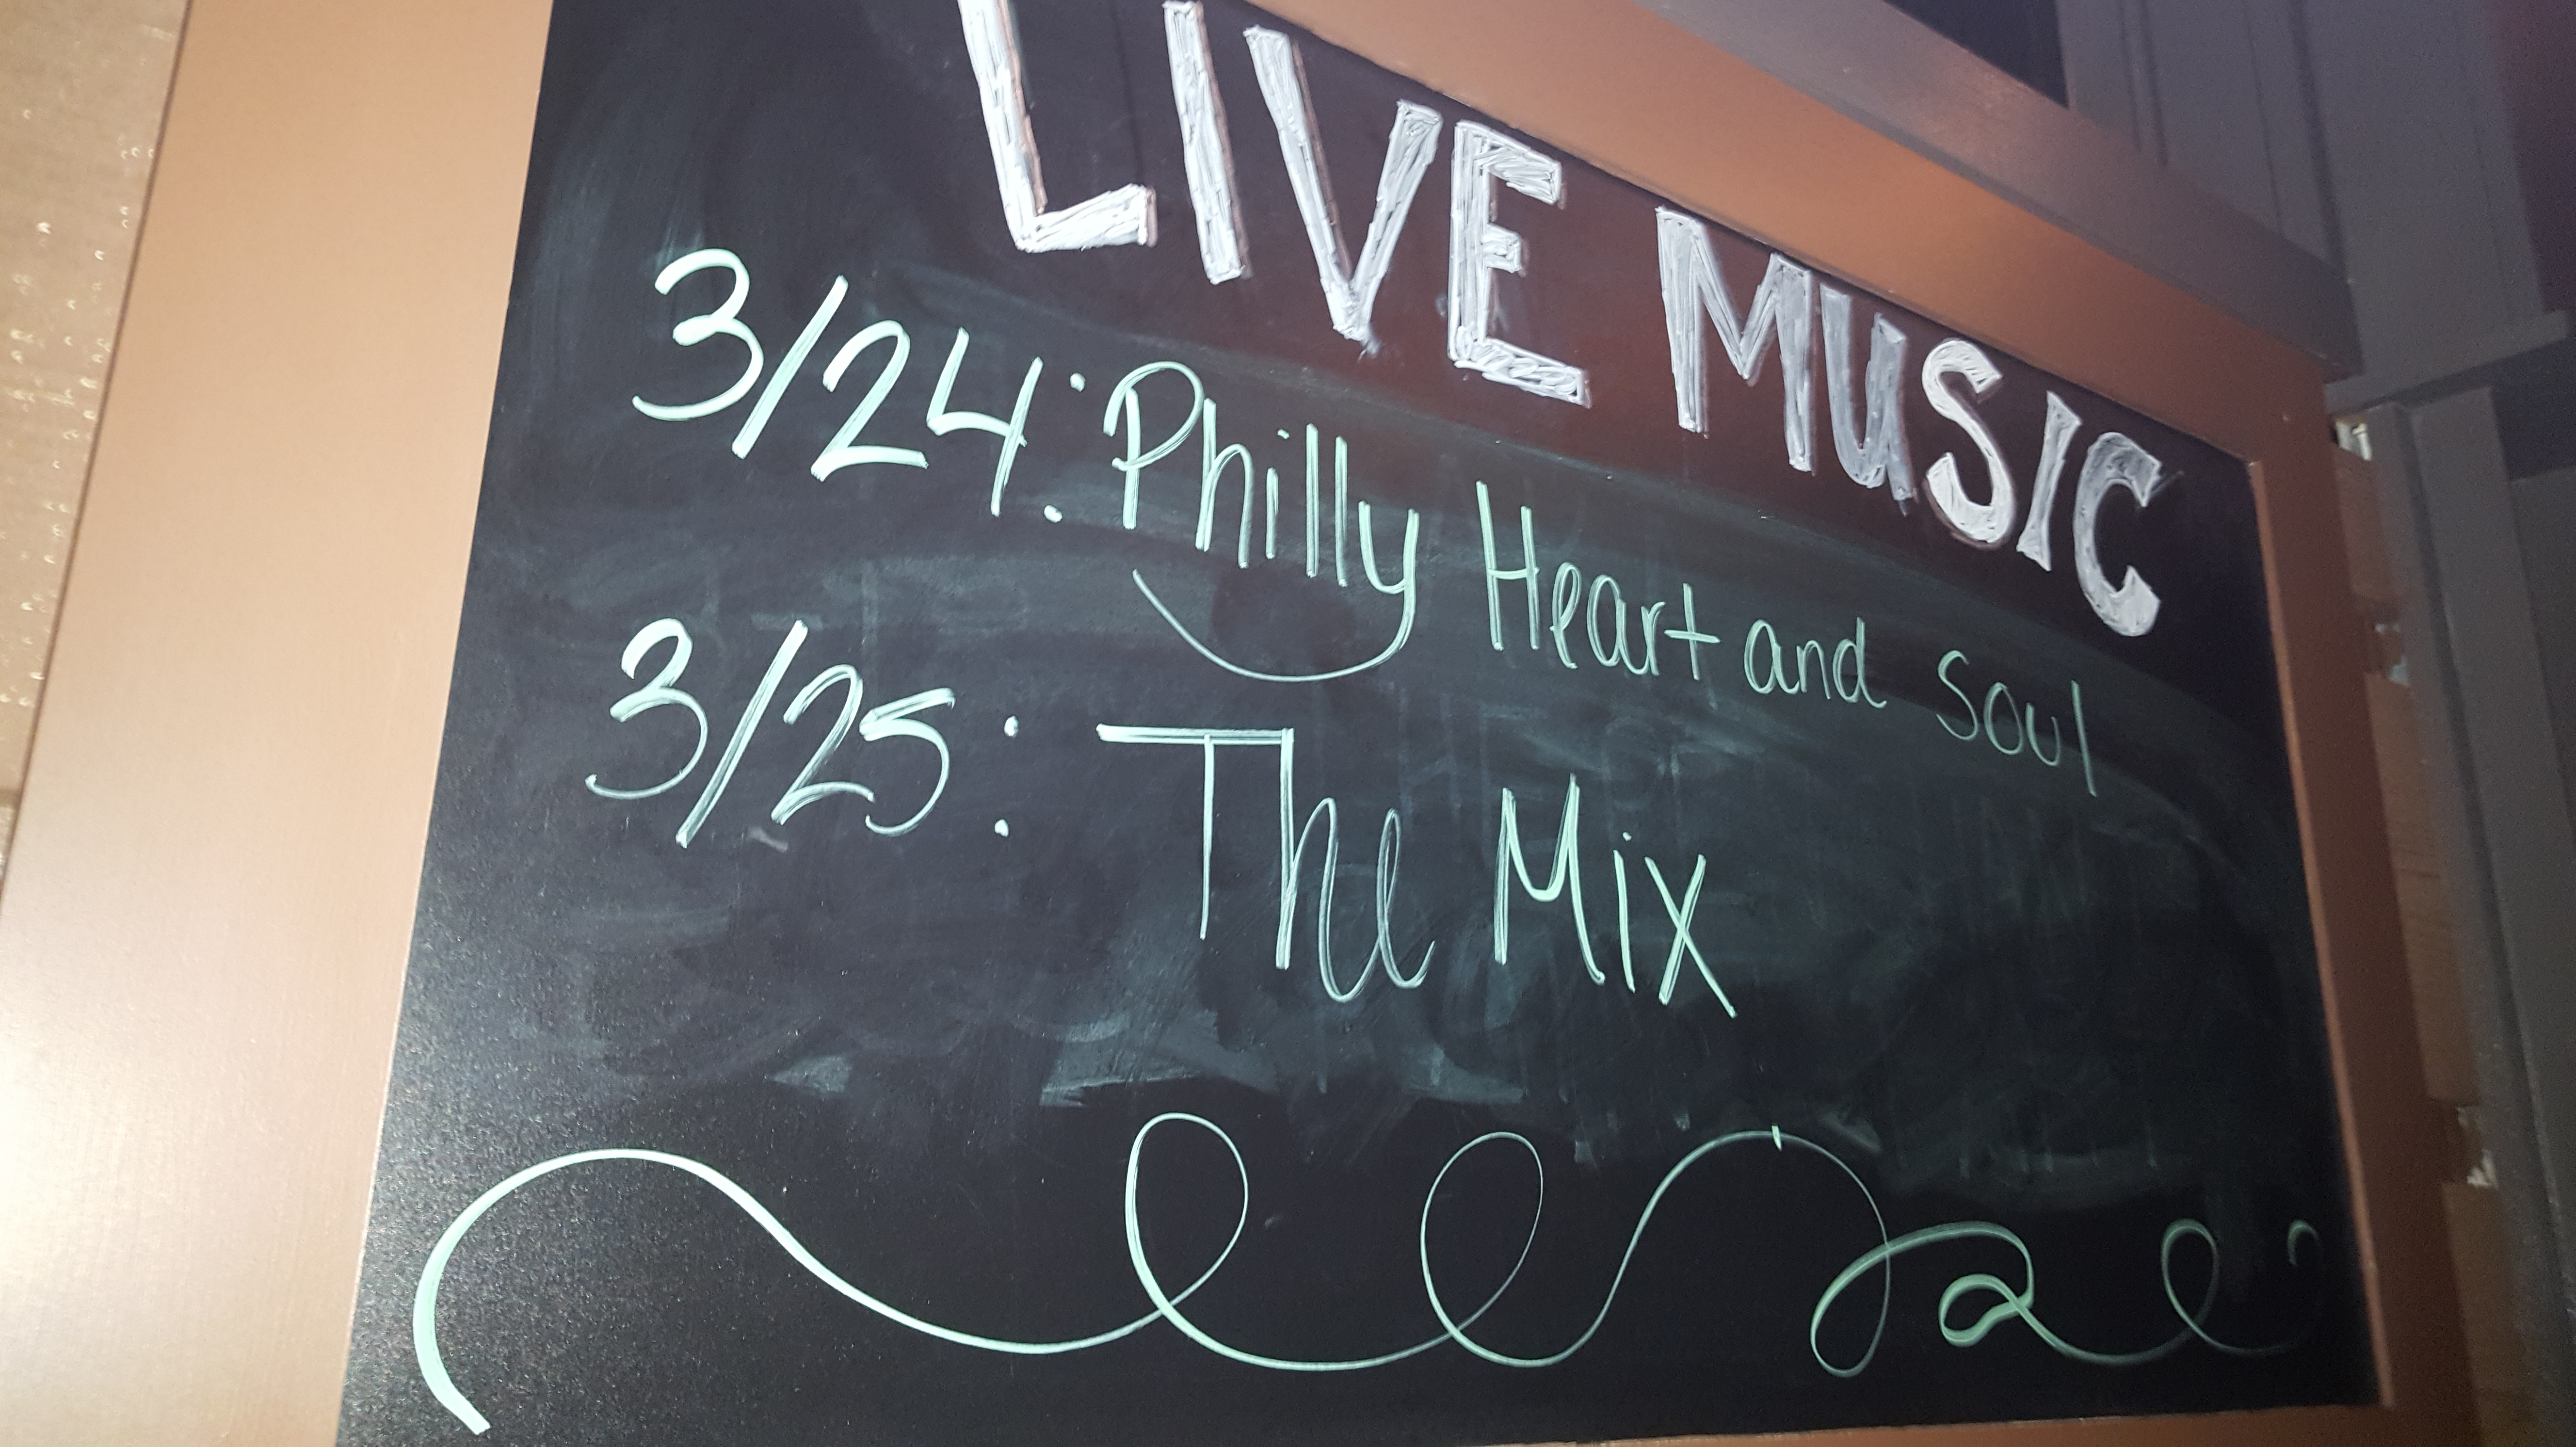 LIVE MUSIC
3/24: Philly Heart and Soul
3/25: The Mix